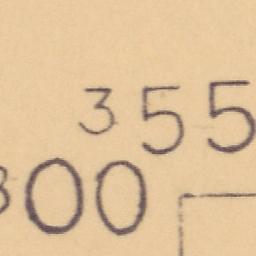 355
300